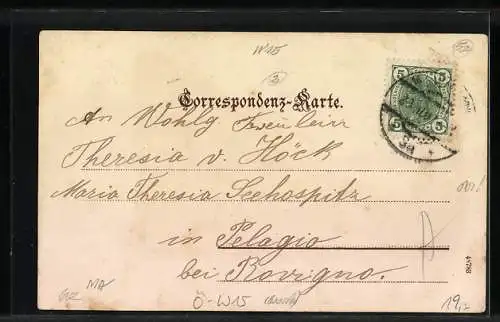 W 15
3
Correspondenz-Karte.
5 5
5 5
An Wohlg
Theresia v. Höck
Maria Theresia Seehospitz
in Pelagio
bei Rovigno.
MA
Ö-W15
19,-